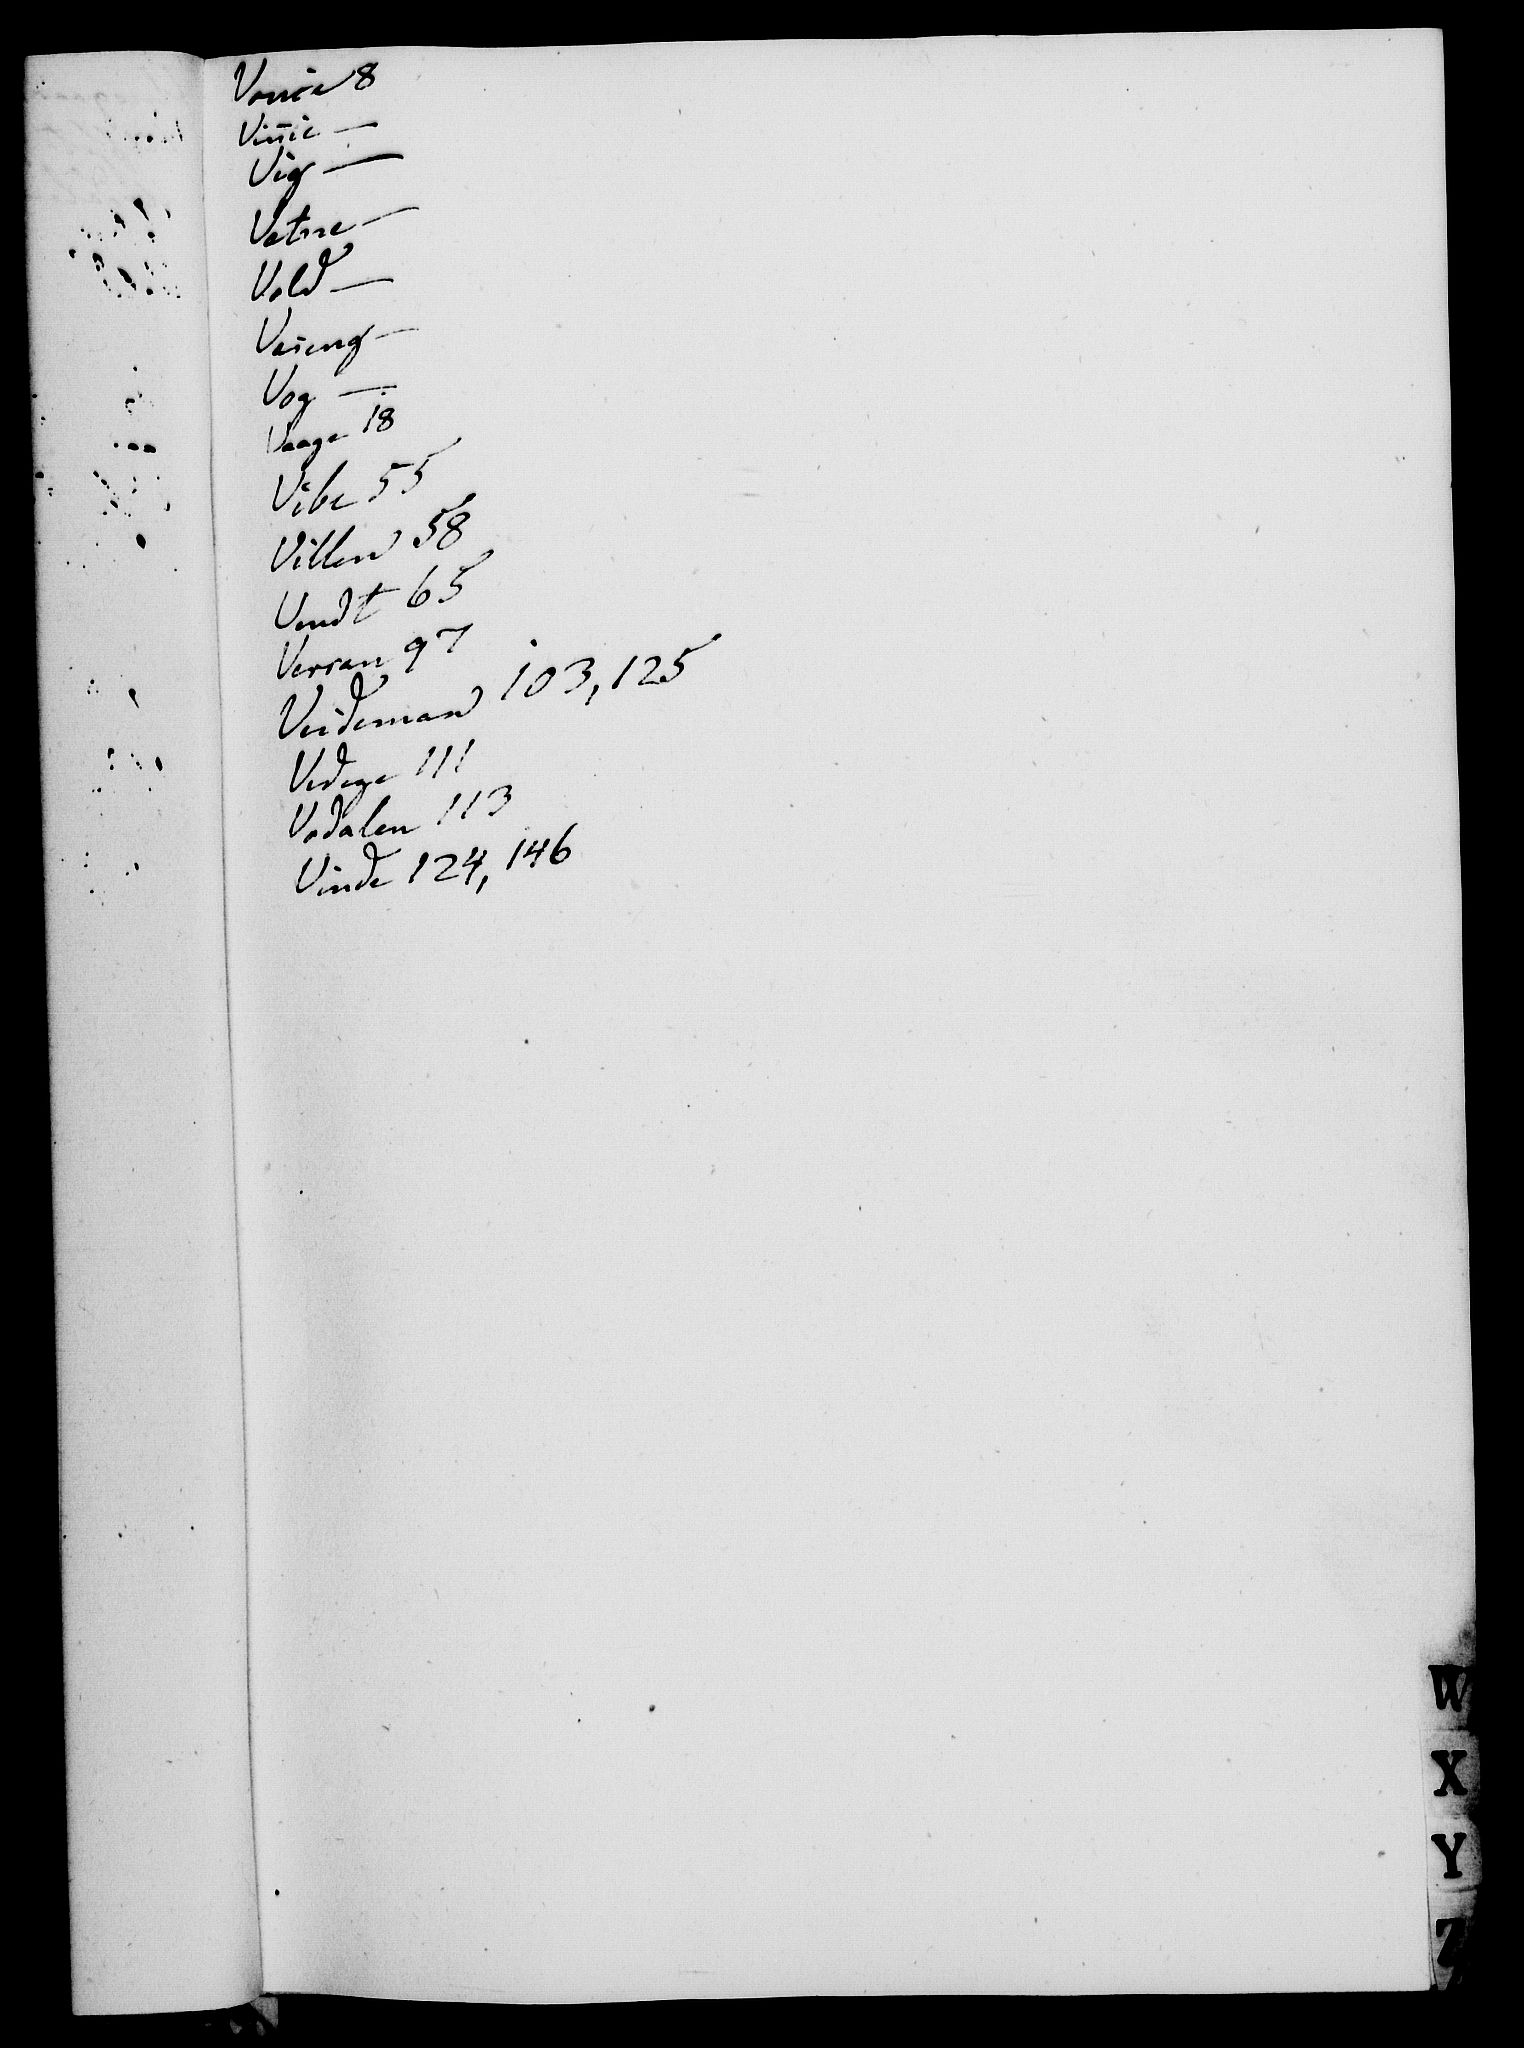 Vonie 8
Vinie —
Vig —
Vatne —
Vold —
Vaseng —
Vog —
Vaage 18
Vibe 55
Villen 58
Vendt 65
Versan 97
Veideman 103, 125
Vedege 111
Vodalen 113
Vinde 124, 146
W
X
Y
Z